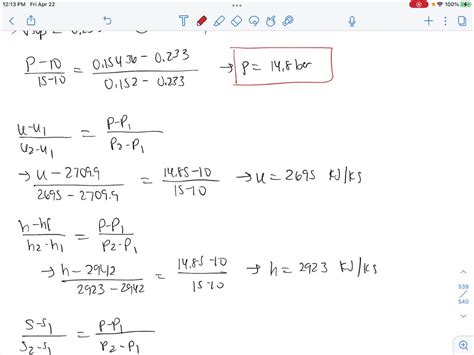 12:13 PM Fri Apr 22
100%
P-10 / 15-10 = 0.15436 - 0.233 / 0.152 - 0.233 → P = 14.8 bar
u-u1 / u2-u1 = P-P1 / P2-P1
→ u - 2709.9 / 2695 - 2709.9 = 14.85-10 / 15-10 → u = 2695 kJ/kg
h-h1 / h2-h1 = P-P1 / P2-P1
→ h - 2942 / 2923 - 2942 = 14.85-10 / 15-10 → h = 2923 kJ/kg
539
540
S-S1 / S2-S1 = P-P1 / P2-P1